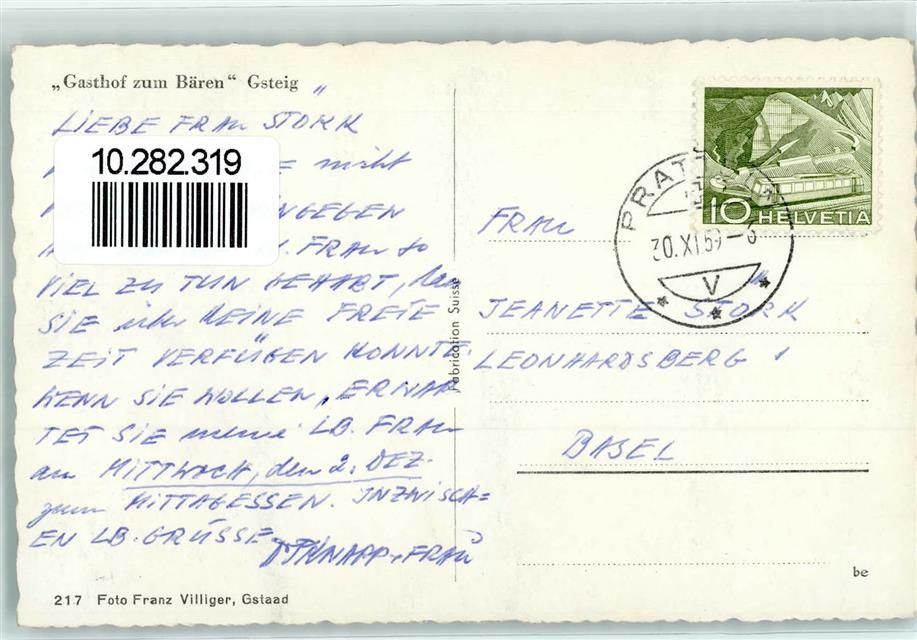 „Gasthof zum Bären“ Gsteig
LIEBE FRAU STORK
10.282.319
nicht
NGEGEN
FRAU so
VIEL ZU TUN GEHABT, dass
SIE über KEINE FREIE
ZEIT VERFÜGEN KONNTE.
WENN SIE WOLLEN, ERWAR
TET SIE meine LB. FRAU
am MITTWOCH, den 2. DEZ.
zum MITTAGESSEN. INZWISCH=
EN LB. GRÜSSE
+ FRAU
217 Foto Franz Villiger, Gstaad
Fabrication Suisse
10 HELVETIA
PRATTELN
30.XI.59
V
FRAU
JEANETTE STORK
LEONHARDSBERG 1
BASEL
be